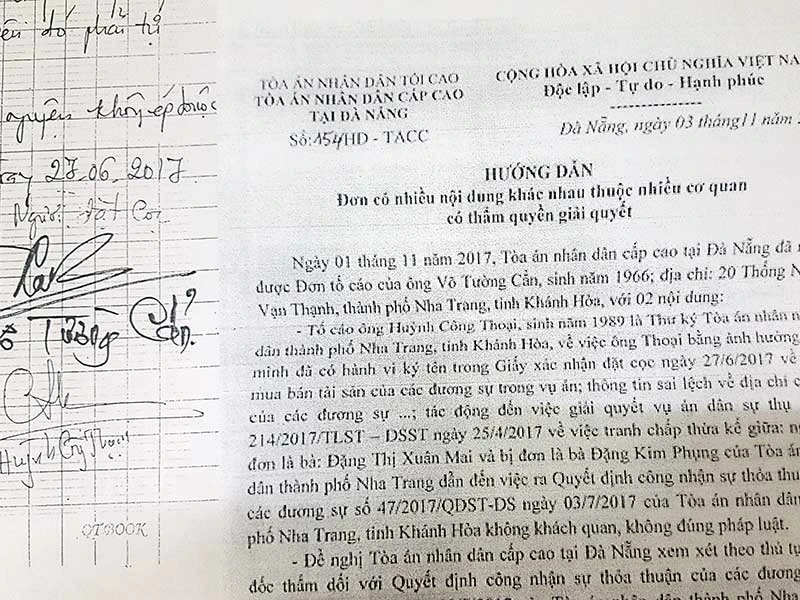 đó phải tự
nguyện không ép buộc
27.06.2017.
Người đặt cọc
Tường Cẩn.
Huỳnh Công Thoại
QTBOOK
TÒA ÁN NHÂN DÂN TỐI CAO
TÒA ÁN NHÂN DÂN CẤP CAO
TẠI ĐÀ NẴNG
Số:154/HD - TACC
CỘNG HÒA XÃ HỘI CHỦ NGHĨA VIỆT NA
Độc lập - Tự do - Hạnh phúc
Đà Nẵng, ngày 03 tháng11 năm 2
HƯỚNG DẪN
Đơn có nhiều nội dung khác nhau thuộc nhiều cơ quan
có thẩm quyền giải quyết
Ngày 01 tháng 11 năm 2017, Tòa án nhân dân cấp cao tại Đà Nẵng đã n
được Đơn tố cáo của ông Võ Tường Cẩn, sinh năm 1966; địa chỉ: 20 Thống N
Vạn Thạnh, thành phố Nha Trang, tỉnh Khánh Hòa, với 02 nội dung:
- Tố cáo ông Huỳnh Công Thoại, sinh năm 1989 là Thư ký Tòa án nhân n
dân thành phố Nha Trang, tỉnh Khánh Hòa, về việc ông Thoại bằng ảnh hưởng
mình đã có hành vi ký tên trong Giấy xác nhận đặt cọc ngày 27/6/2017 về
mua bán tài sản của các đương sự trong vụ án; thông tin sai lệch về địa chỉ c
của các đương sự ...; tác động đến việc giải quyết vụ án dân sự thụ
214/2017/TLST – DSST ngày 25/4/2017 về việc tranh chấp thừa kế giữa: ng
đơn là bà: Đặng Thị Xuân Mai và bị đơn là bà Đặng Kim Phụng của Tòa án
dân thành phố Nha Trang dẫn đến việc ra Quyết định công nhận sự thỏa thuậ
các đương sự số 47/2017/QDST-DS ngày 03/7/2017 của Tòa án nhân dân
phố Nha Trang, tỉnh Khánh Hòa không khách quan, không đúng pháp luật.
- Đề nghị Tòa án nhân dân cấp cao tại Đà Nẵng xem xét theo thủ tụ
đốc thẩm đối với Quyết định công nhận sự thỏa thuận của các đương